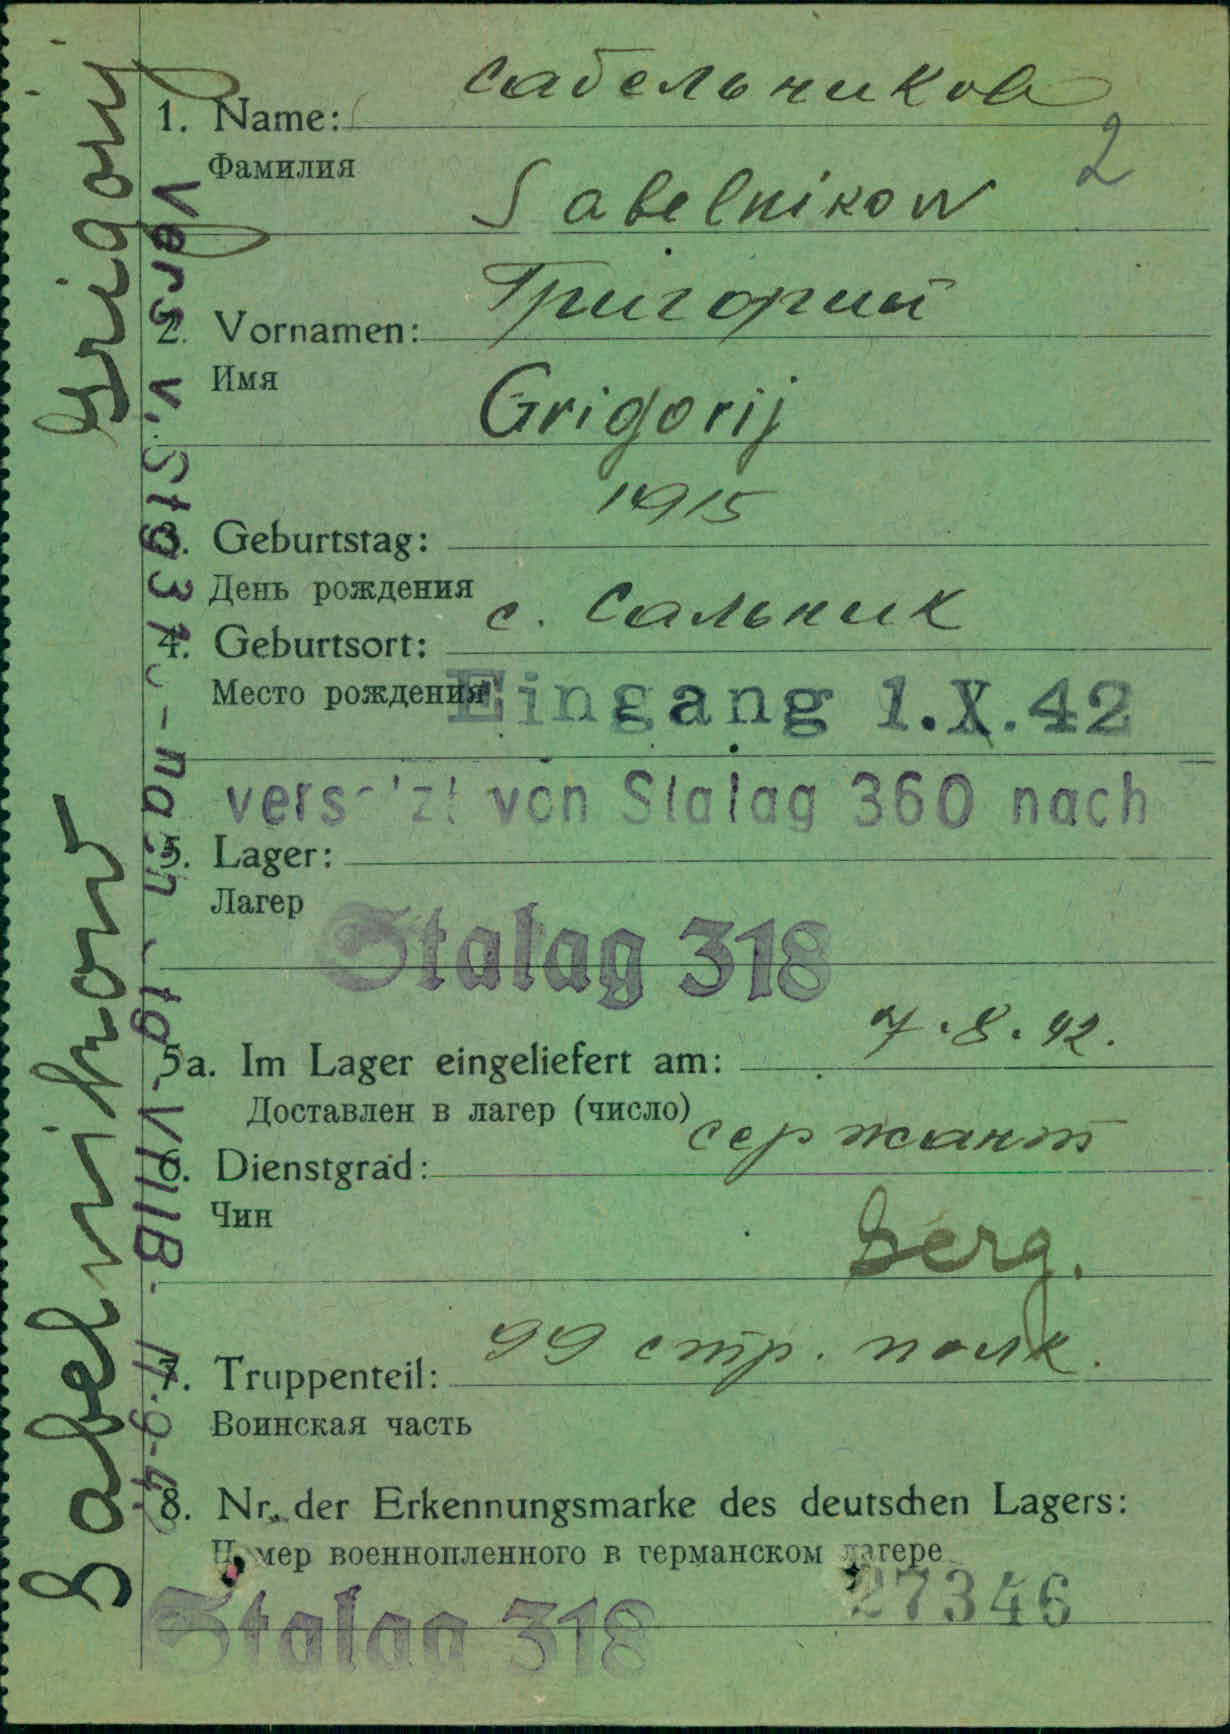 Сабельников
1. Name:
Фамилия
2
Sabelnikow
Григорий
2. Vornamen:
Имя
Grigorij
1915
3. Geburtstag:
День рождения
с. Сальник
4. Geburtsort:
Место рождения
Eingang 1.X.42
von Stalag 360 nach
5. Lager:
Лагер
Stalag 318
7.8.42.
5a. Im Lager eingeliefert am:
Доставлен в лагер (число)
сержант
6. Dienstgrad:
Чин
Serg.
99 стр. полк.
7. Truppenteil:
Воинская часть
8. Nr. der Erkennungsmarke des deutschen Lagers:
Номер военнопленного в германском лагере
27346
Stalag 318
Sabelnikow Grigorij
Vers v. Stg - nach VIIIB - 17.9.42